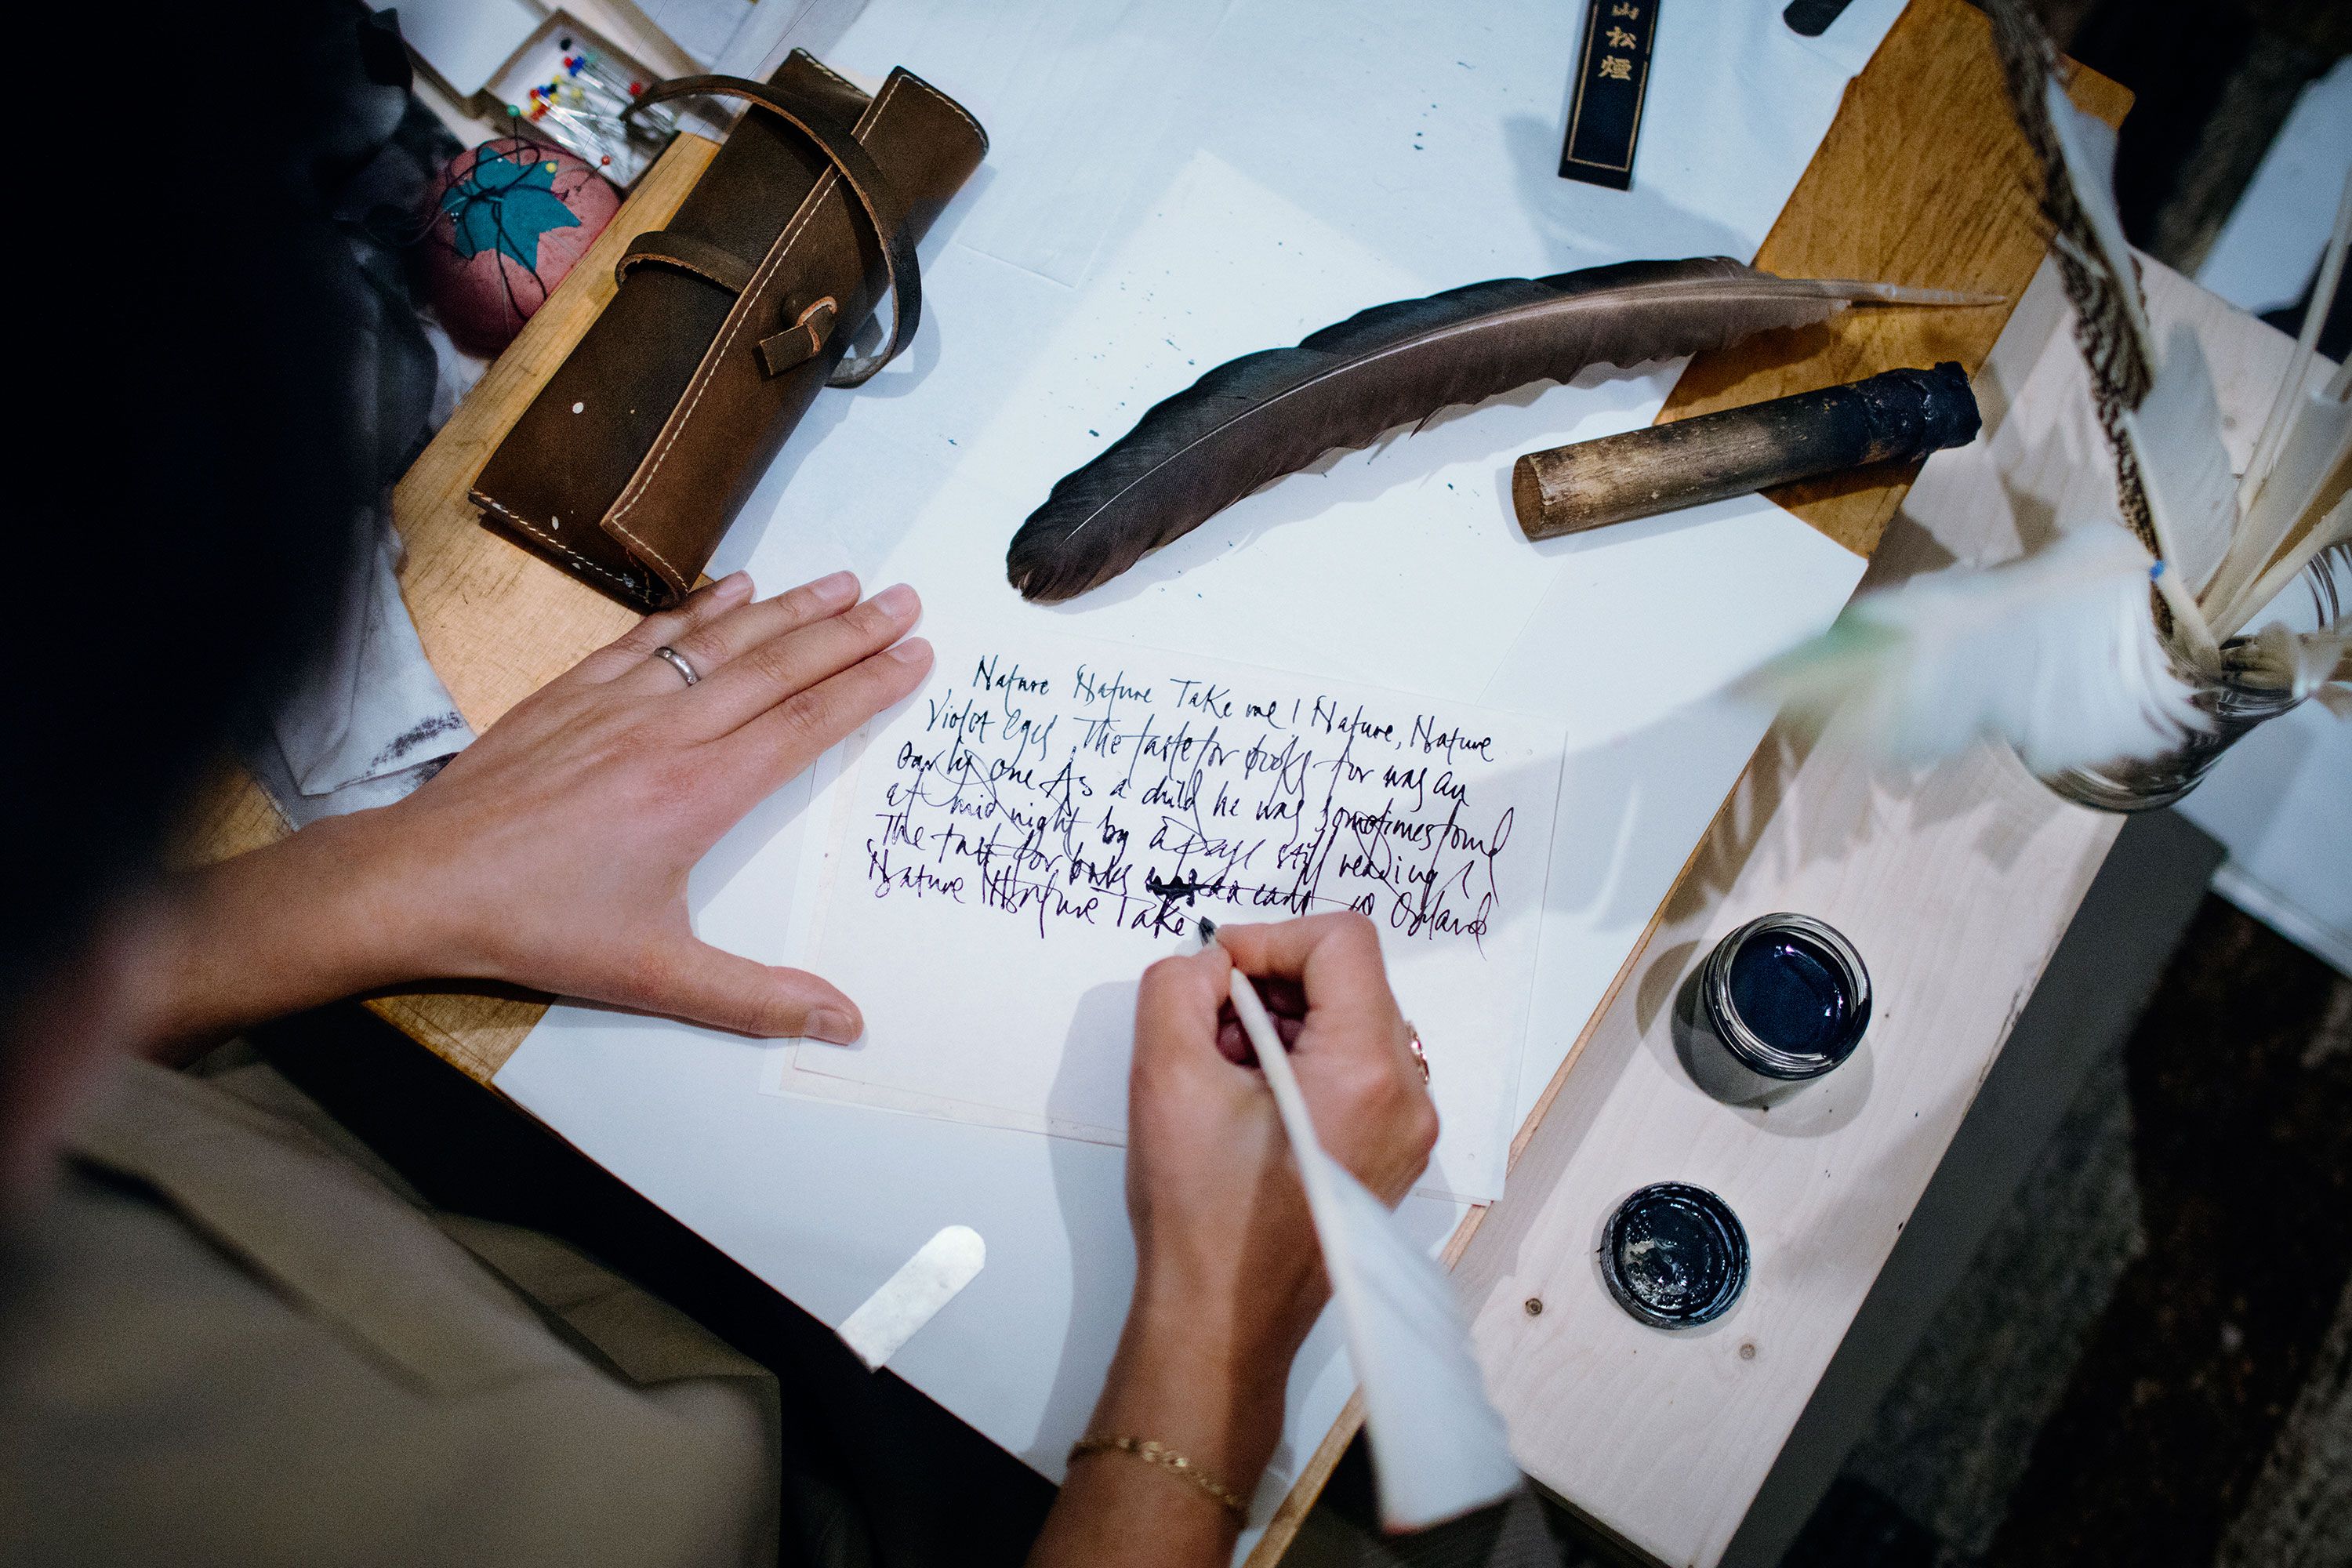 山松煙
Nature Nature Take me ! Nature, Nature
Violet Eyes The taste for books for was an
Early one As a child he was sometimes found
at midnight by a page still reading
The taste for books was an early so Orlando
Nature Nature Take